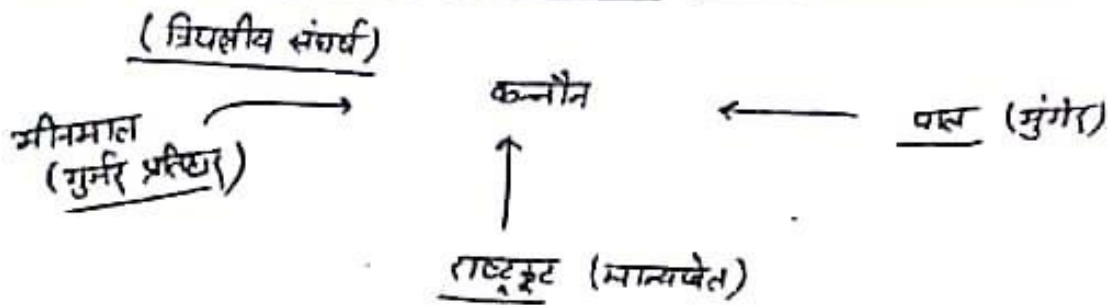 (त्रिपक्षीय संघर्ष)
कन्नौज
भीनमाल
(गुर्जर प्रतिहार)
पाल (मुंगेर)
राष्ट्रकूट (मान्यखेत)